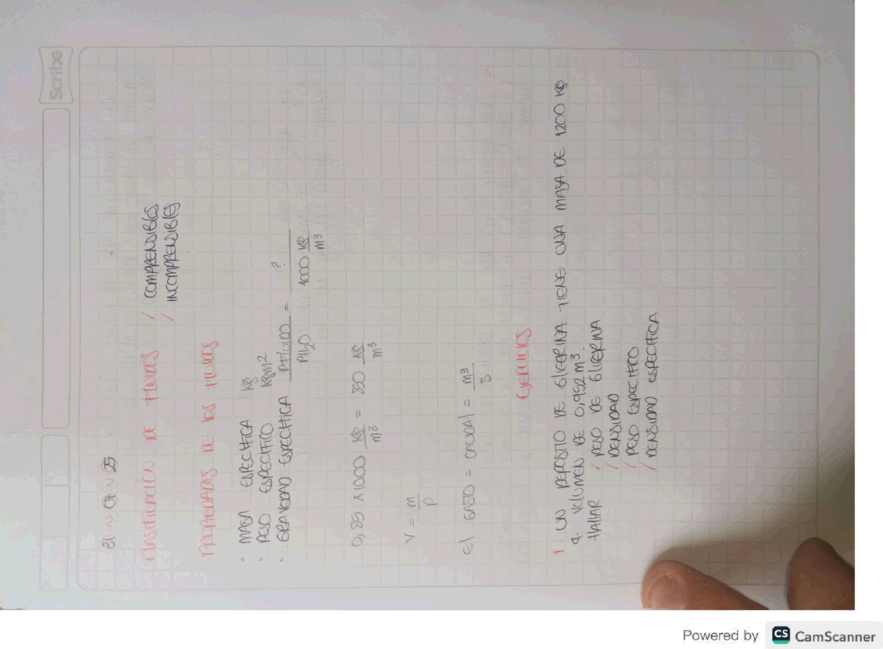 Scribe
21 ~ 07 ~ 25
Clasificación de fluidos / COMPRENSIBLES
/ INCOMPRENSIBLES
PROPIEDADES DE LOS FLUIDOS
• MASA ESPECIFICA kg
• PESO ESPECIFICO
• GRAVEDAD ESPECIFICA = ?
H2O 1000 kg
m3
0,85 x 1000 kg/m3 = 850 kg/m3
V = m/ρ
el GASTO = CAUDAL = m3/s
EJERCICIOS
1 UN DEPOSITO DE GLICERINA TIENE UNA MASA DE 1200 kg
VOLUMEN DE 0,952 m3.
HALLAR / PESO DE GLICERINA
/ DENSIDAD
/ PESO ESPECIFICO
/ DENSIDAD ESPECIFICA
Powered by CS CamScanner